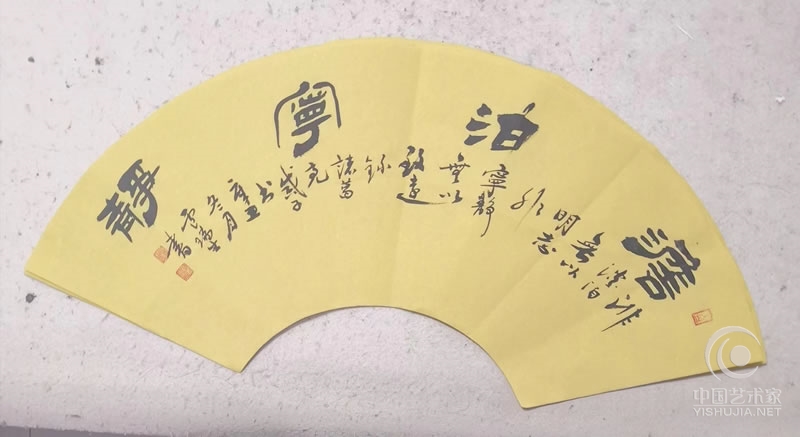 澹泊寧靜
非
泊
無以
明志
非
寧靜
無以
致遠
錄
諸葛
亮
誡子
書
辛丑
冬月
書
中国艺术家
YISHUJIA.NET